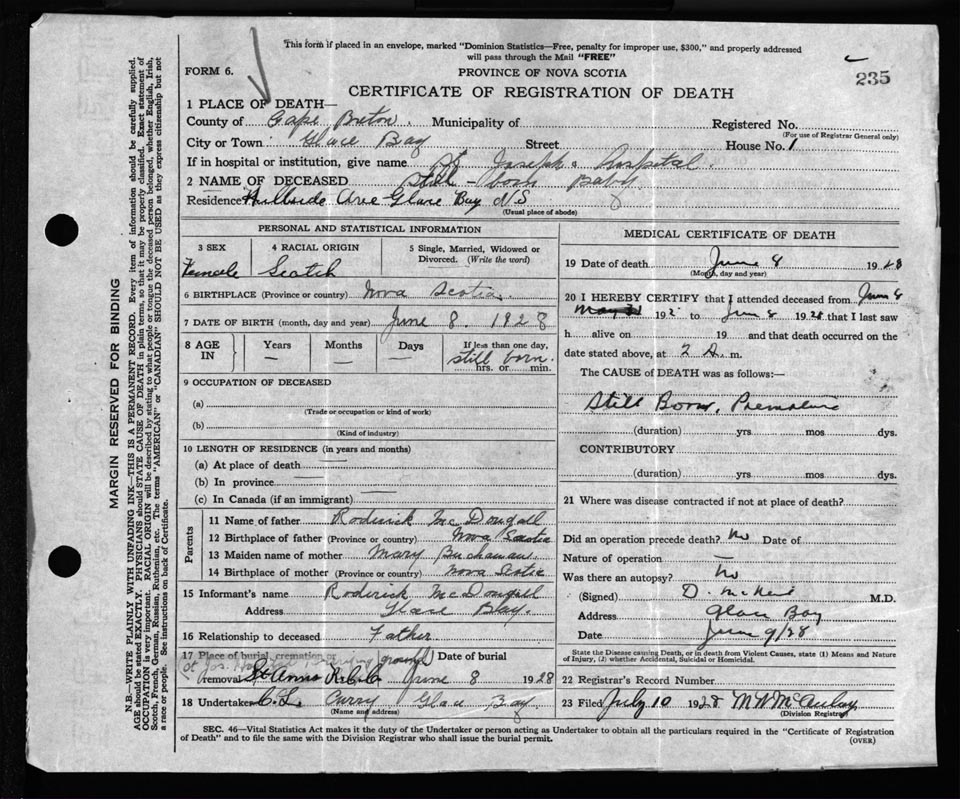 This form if placed in an envelope, marked "Dominion Statistics—Free, penalty for improper use, $300," and properly addressed
will pass through the Mail "FREE"
235
FORM 6.
PROVINCE OF NOVA SCOTIA
CERTIFICATE OF REGISTRATION OF DEATH
1 PLACE OF DEATH—
County of Cape Breton. Municipality of Registered No.
(For use of Registrar General only)
City or Town Glace Bay Street House No. 1
If in hospital or institution, give name St Joseph's Hospital.
2 NAME OF DECEASED Still-born Baby
Residence Hillside Ave Glace Bay N S
(Usual place of abode)
PERSONAL AND STATISTICAL INFORMATION
3 SEX 4 RACIAL ORIGIN 5 Single, Married, Widowed or Divorced. (Write the word)
Female Scotch
6 BIRTHPLACE (Province or country) Nova Scotia.
7 DATE OF BIRTH (month, day and year) June 8. 1928
8 AGE IN Years Months Days If less than one day,
— — — still born.
hrs. or min.
9 OCCUPATION OF DECEASED
(a) —
(Trade or occupation or kind of work)
(b) —
(Kind of industry)
10 LENGTH OF RESIDENCE (in years and months)
(a) At place of death —
(b) In province —
(c) In Canada (if an immigrant) —
Parents
11 Name of father Roderick McDougall
12 Birthplace of father (Province or country) Nova Scotia
13 Maiden name of mother Mary Buchanan
14 Birthplace of mother (Province or country) Nova Scotia
15 Informant's name Roderick McDougall
Address Glace Bay.
16 Relationship to deceased Father
17 Place of burial, cremation or Date of burial
(at Jos. Hospital Burying ground)
removal St Anns R.C.C June 8 1928
18 Undertaker C.L. Curry Glace Bay
(Name and address)
MEDICAL CERTIFICATE OF DEATH
19 Date of death June 8 1928
(Month, day and year)
20 I HEREBY CERTIFY that I attended deceased from June 8
May 31 192 to June 8 1928 that I last saw
h alive on 19 and that death occurred on the
date stated above, at 2 A. m.
The CAUSE OF DEATH was as follows:—
Still Born, Premature
(duration) yrs mos dys.
CONTRIBUTORY
(duration) yrs mos dys.
21 Where was disease contracted if not at place of death?
Did an operation precede death? No Date of
Nature of operation —
Was there an autopsy? No
(Signed) D. McNeil M.D.
Address Glace Bay
Date June 9/28
State the Disease causing Death, or in death from Violent Causes, state (1) Means and Nature
of Injury, (2) whether Accidental, Suicidal or Homicidal.
22 Registrar's Record Number
23 Filed July 10 1928 M W McAulay
(Division Registrar)
SEC. 46—Vital Statistics Act makes it the duty of the Undertaker or person acting as Undertaker to obtain all the particulars required in the "Certificate of Registration
of Death" and to file the same with the Division Registrar who shall issue the burial permit.
(OVER)
MARGIN RESERVED FOR BINDING
N.B.—WRITE PLAINLY WITH UNFADING INK—THIS IS A PERMANENT RECORD. Every item of information should be carefully supplied.
AGE should be stated EXACTLY. PHYSICIANS should STATE CAUSE OF DEATH in plain terms, so that it may be properly classified. Exact statement of
OCCUPATION is very important. RACIAL ORIGIN will be described by stating to what people or tongue the deceased person belonged, whether English, Irish,
Scotch, French, German, Russian, Ruthenian, etc. The terms "AMERICAN" or "CANADIAN" SHOULD NOT BE USED as they express citizenship but not
a race or people. See instructions on back of Certificate.